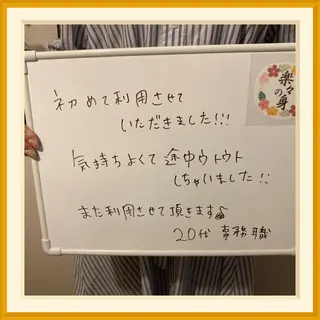 初めて利用させて
いただきました!!!
気持ちよくて途中ウトウト
しちゃいました!!
また利用させて頂きます♪
20代 事務職
楽々
の身